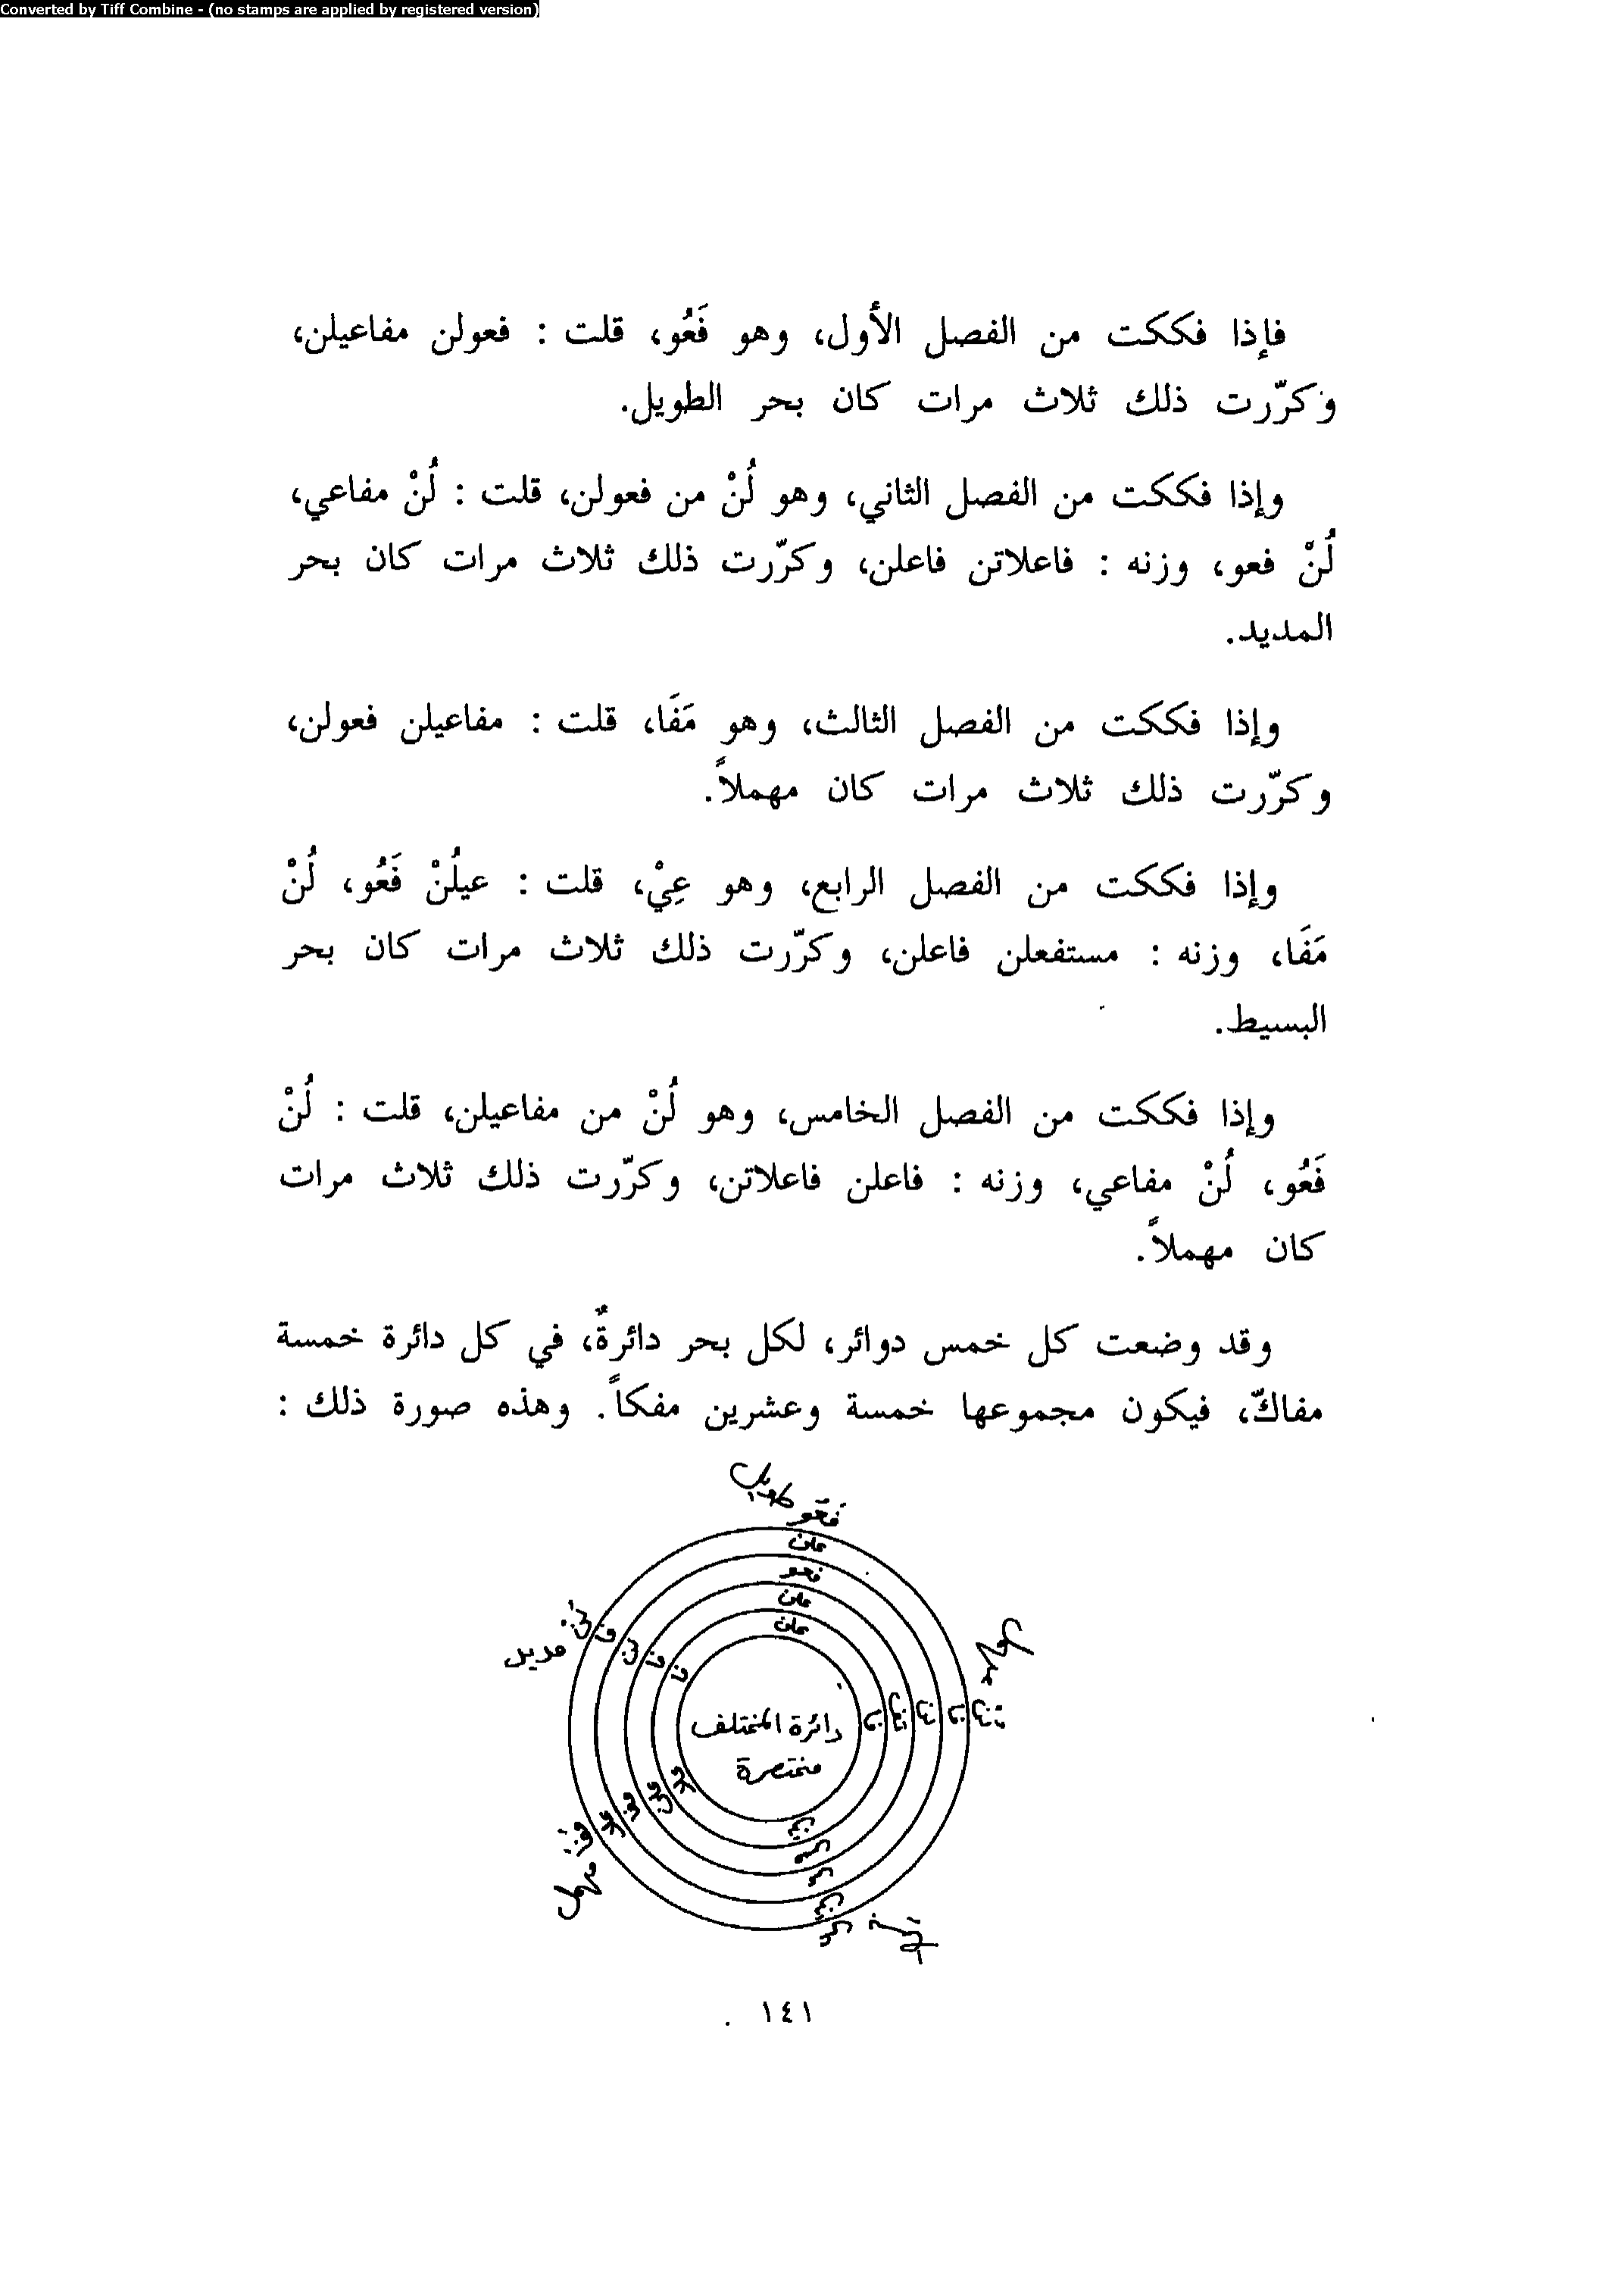 Converted by Tiff Combine - (no stamps are applied by registered version)
فإذا فككت من الفصل الأول، وهو فَعُو، قلت : فعولن مفاعيلن،
وكرّرت ذلك ثلاث مرات كان بحر الطويل.
وإذا فككت من الفصل الثاني، وهو لُنْ من فعولن، قلت : لُنْ مفاعي،
لُنْ فعو، وزنه : فاعلاتن فاعلن، وكرّرت ذلك ثلاث مرات كان بحر
المديد.
وإذا فككت من الفصل الثالث، وهو مَفَا، قلت : مفاعيلن فعولن،
وكرّرت ذلك ثلاث مرات كان مهملاً.
وإذا فككت من الفصل الرابع، وهو عِيْ، قلت : عيلُنْ فَعُو، لُنْ
مَفَا، وزنه : مستفعلن فاعلن، وكرّرت ذلك ثلاث مرات كان بحر
البسيط.
وإذا فككت من الفصل الخامس، وهو لُنْ من مفاعيلن، قلت : لُنْ
فَعُو، لُنْ مفاعي، وزنه : فاعلن فاعلاتن، وكرّرت ذلك ثلاث مرات
كان مهملاً.
وقد وضعت كل خمس دوائر، لكل بحر دائرةٌ، في كل دائرة خمسة
مفاكّ، فيكون مجموعها خمسة وعشرين مفكاً. وهذه صورة ذلك :
طويل
فَعُو
علن
فعو
علن
علن
لُنْ فا لن فا فا
مديد
دائرة المختلف
مختصرة
مهمل
١٤١